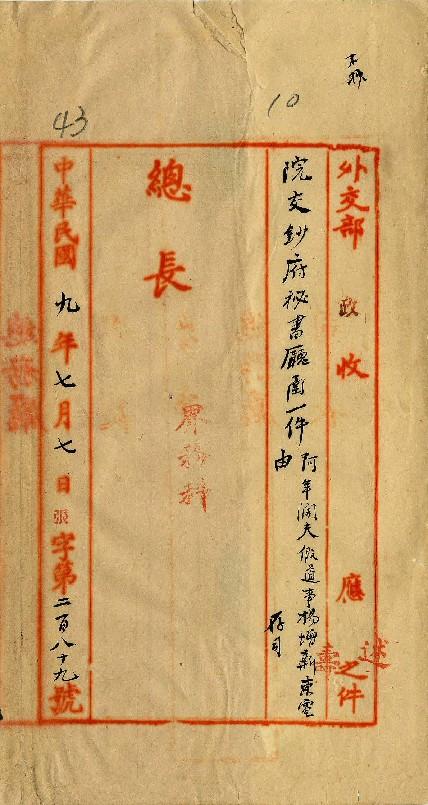 10
43
外交部 政 收 應 之件
院交鈔府秘書廳函一件
阿年闊夫假道事楊增新東電
由
存司
總長
界務科
中華民國九年七月七日張字第二百八十九號